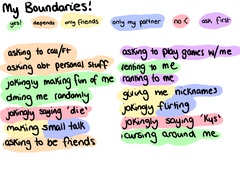 My Boundaries!
yes! depends any friends only my partner no :( ask first
asking to call/ft
asking abt personal stuff
jokingly making fun of me
dming me randomly
jokingly saying 'die'
making small talk
asking to be friends
asking to play games w/me
venting to me
ranting to me
giving me nicknames
jokingly flirting
jokingly saying 'kys'
cursing around me